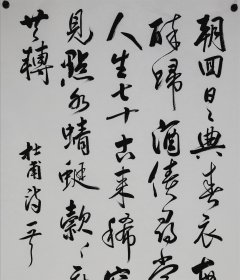 朝回日々典春衣
醉歸酒債尋常
人生七十古来稀穿
見點水蜻蜓款々
共轉
杜甫詩一首